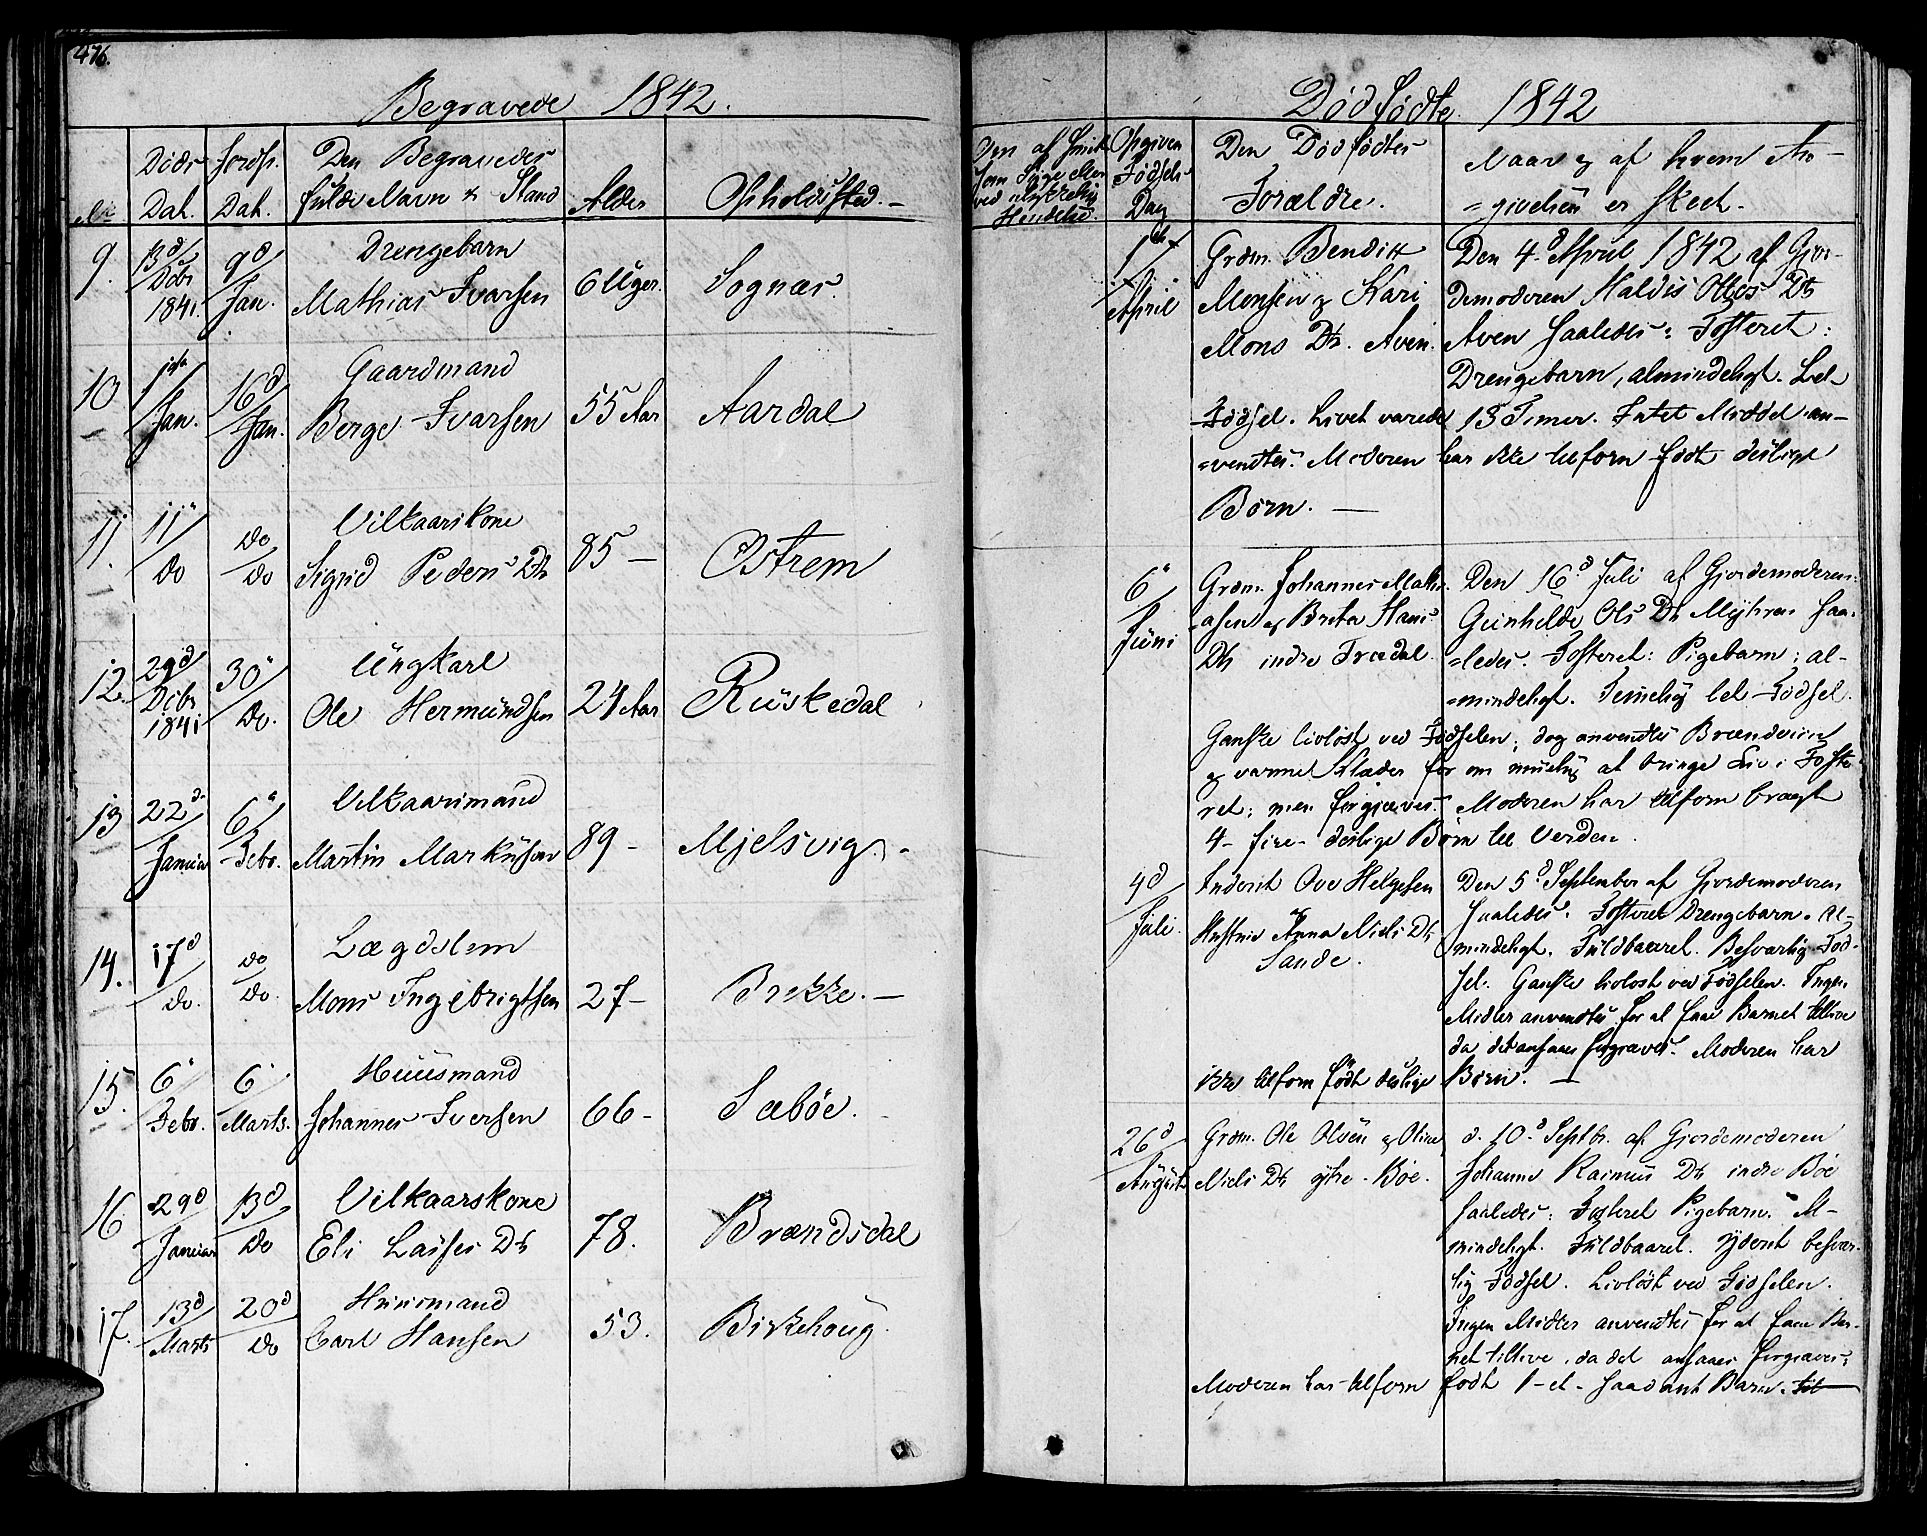 476.
Begravede 1842.
No Døds Dat. Jordsp. Dat. Den Begravedes fulde Navn & Stand Alder Opholdssted.
9. 13d/Dcbr 1841. 9d/Jan. Drengebarn
Mathias Ivarsen 6 Uger. Sognæs.
10 1ste/Jan. 16d/Jan. Gaardmand
Berge Ivarsen 55 Aar Aardal
11. 11"/do do/do Vilkaarskone
Sigrid Peders Dtr 85 - Ostrem
12. 29d/Dcbr 1841 30"/do. Ungkarl
Ole Hermundsen 24 Aar Ruskedal
13 22d/Januar 6"/Febr. Vilkaarsmand
Martin Markusen 89 - Mjelsvig. -
14. 17d/do. do/do. Lægdslem
Mons Ingebrigtsen 27 - Brekke. -
15. 6"/Febr. 6"/Marts. Huusmand
Johannes Iversen 66 - Sæbøe.
16 29d/Januar 13d/do Vilkaarskone
Eli Lasses Dtr 78. Brændsdal
17. 13d/Marts 20d/do Huusmand
Carl Hansen 53. Birkehoug.
Dødfødte 1842
Opgiven Fødsels Dag
Den Dødfødtes
Forældre.
Naar og af hvem An-
=givelsen er skeet.
1ste/April
Grdm. Bendik
Monsen & Kari
Mons Dtr. Aven.
Den 4d April 1842 af Gjor-
demoderen Maldis Olles Dtr
Aven saaledes: Fosteret:
Drengebarn, almindeligt. Let
Fødsel. Livet varede 13 Timer. Intet Middel an-
=vendtes. Moderen har ikke tilforn født deslige
Børn. -
6"/Juni
Grdm. Johannes Mathi-
asen & Brita Hans
Dtr indre Frædal.
Den 16d Juli af Gjordemoderen
Gunhilde Ols Dtr Myhren saa-
=ledes. Fosteret: Pigebarn; al-
=mindeligt. Temelig let Fødsel.
Ganske livløst ved Fødselen; dog anvendtes Brændeviin
& varme Klæder for om muelig at bringe Liv i Foste-
ret; men forgjæves. Moderen har tilforn bragt
4 - fire - deslige Børn til Verden.
4d/Juli.
Inderst Ove Helgesen
& Hustrue Anna Niels Dtr
Sande.
Den 5d September af Gjordemoderen
saaledes. Fosteret Drengebarn. Al-
mindeligt. Fuldbaaret. Besværlig Fød-
sel. Ganske livløst ved Fødselen. Ingen
Midler anvendtes for at faae Barnet tillive
da det ansaaes forgjæves. Moderen har
ikke tilforn født deslige Børn. -
26d/August.
Grdm. Ole Olsen & Oline
Niels Dtr ytre Bøe.
d. 10d Septbr. af Gjordemoderen
Johanne Rasmus Dtr indre Bøe
saaledes: Fosteret Pigebarn. Al-
mindeligt. Fuldbaaret. Yderst besvær-
lig Fødsel. Livløst ved Fødselen.
Ingen Midler anvendtes for at faae Bar-
net tillive, da det ansaaes forgjæves;
Moderen har tilforn født 1 - et - saadant Barn.